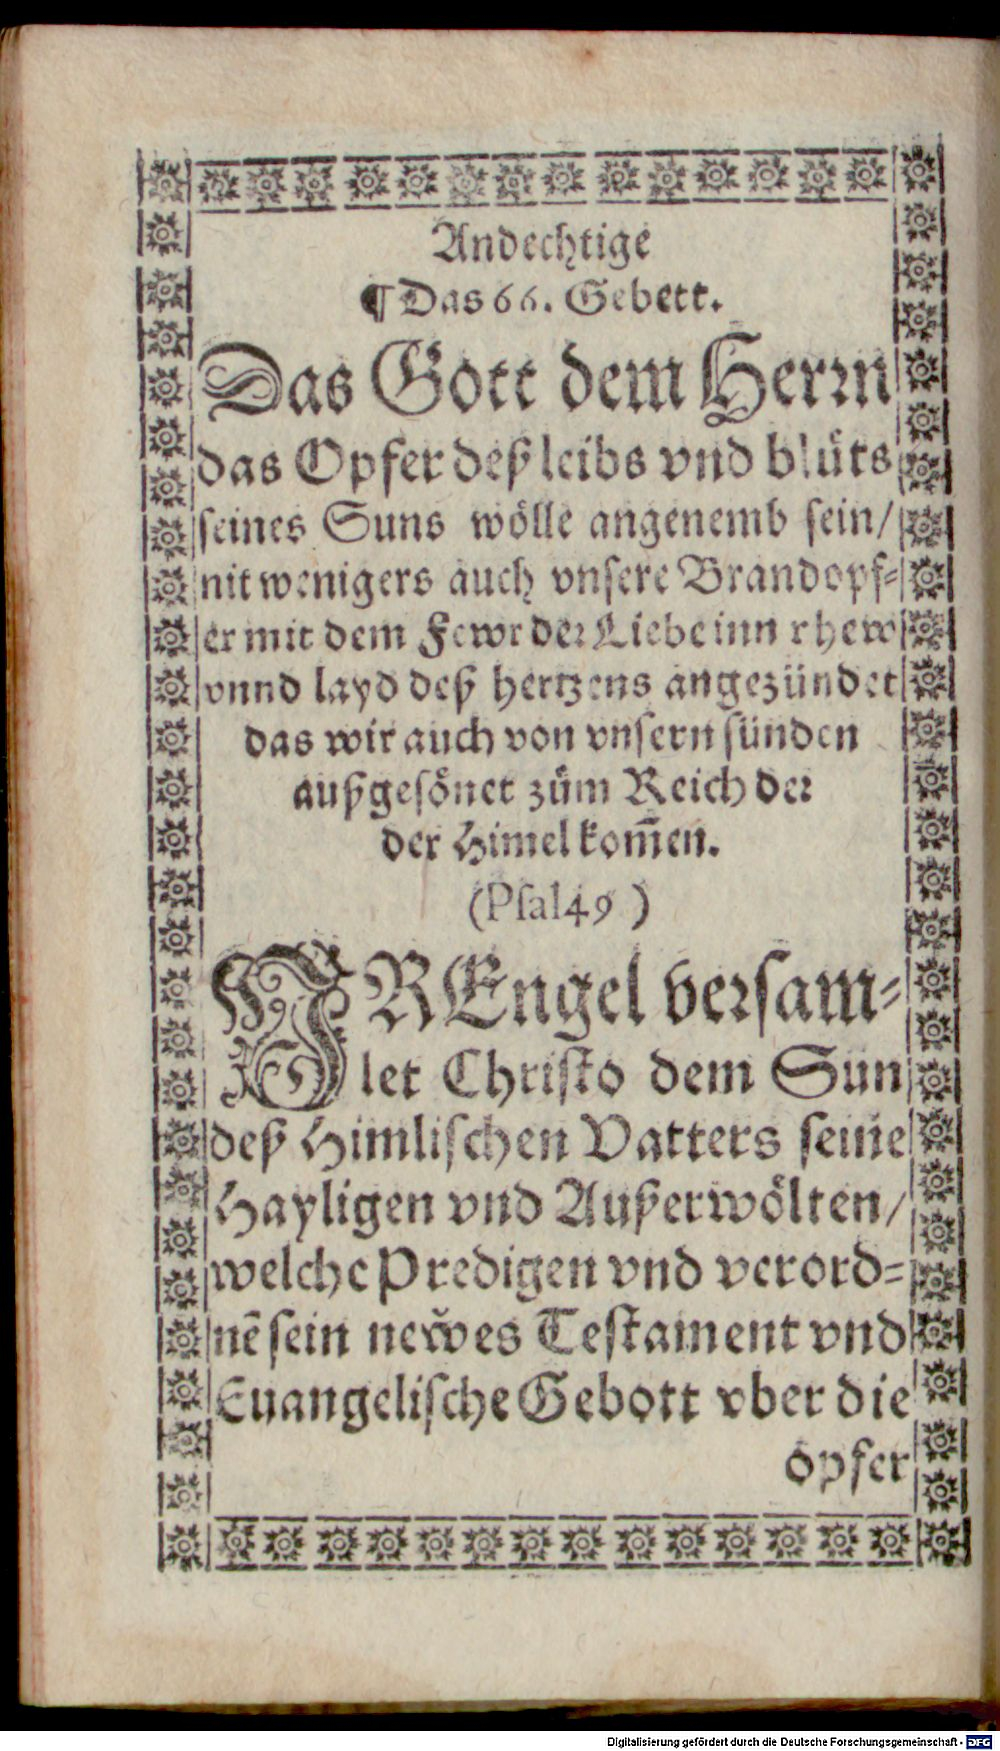 Andechtige
¶ Das 66. Gebett.
Das Gott dem Herꝛn
das Opfer deß leibs vnd blůts
seines Suns wölle angenemb sein/
nit wenigers auch vnsere Brandopf⸗
er mit dem Fewr deꝛ Liebe inn rhew
vnnd layd deß hertzens angezündet
das wir auch von vnsern sünden
außgesönet zům Reich deꝛ
der Himel kom̄en.
(Psal 49 )
IR Engel veꝛsam⸗
let Christo dem Sun
deß Himlischen Vatters seine
Hayligen vnd Außerwölten/
welche Predigen vnd verord⸗
nē sein new̌es Testament vnd
Euangelische Gebott vber die
opfer
Digitalisierung gefördert durch die Deutsche Forschungsgemeinschaft - DFG